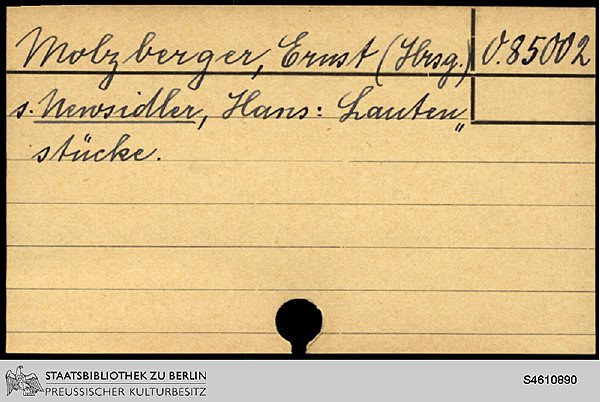 Molzberger, Ernst (Hrsg.) O.85002
s. Newsidler, Hans: Lauten„
stücke.
STAATSBIBLIOTHEK ZU BERLIN
PREUSSISCHER KULTURBESITZ
S4610890